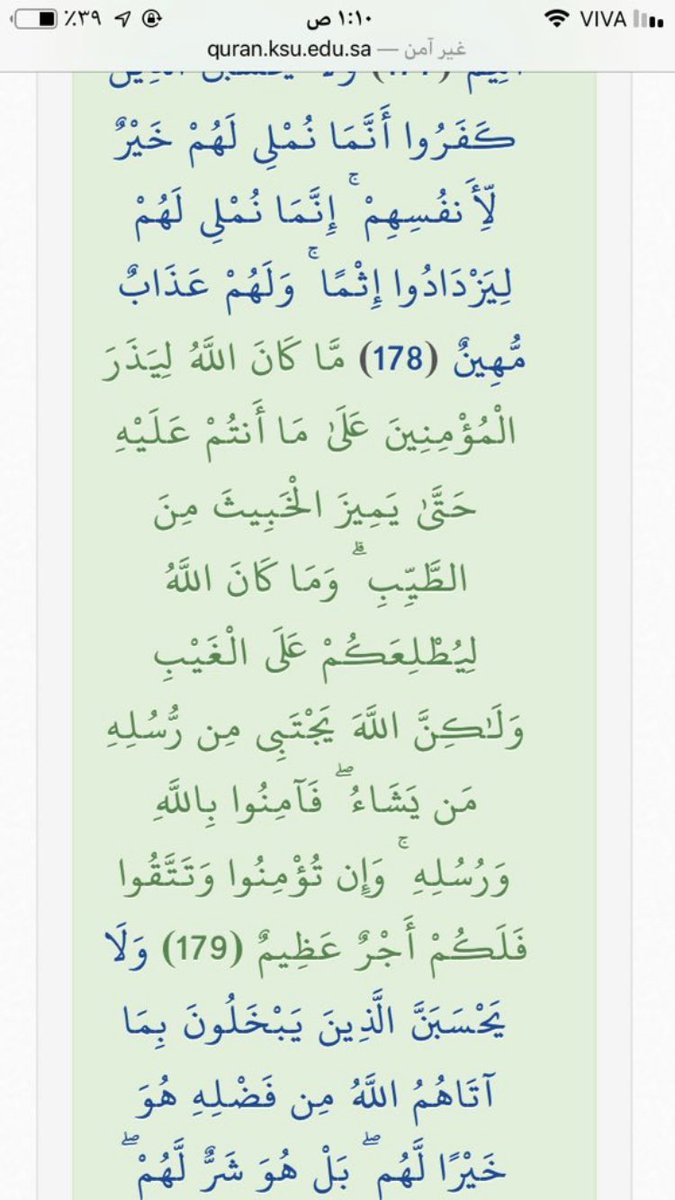 ٪٣٩ ١:١٠ ص VIVA
غير آمن — quran.ksu.edu.sa
كَفَرُوا أَنَّمَا نُمْلِي لَهُمْ خَيْرٌ
لِّأَنفُسِهِمْ ۚ إِنَّمَا نُمْلِي لَهُمْ
لِيَزْدَادُوا إِثْمًا ۚ وَلَهُمْ عَذَابٌ
مُّهِينٌ (178) مَّا كَانَ اللَّهُ لِيَذَرَ
الْمُؤْمِنِينَ عَلَىٰ مَا أَنتُمْ عَلَيْهِ
حَتَّىٰ يَمِيزَ الْخَبِيثَ مِنَ
الطَّيِّبِ ۗ وَمَا كَانَ اللَّهُ
لِيُطْلِعَكُمْ عَلَى الْغَيْبِ
وَلَٰكِنَّ اللَّهَ يَجْتَبِي مِن رُّسُلِهِ
مَن يَشَاءُ ۖ فَآمِنُوا بِاللَّهِ
وَرُسُلِهِ ۚ وَإِن تُؤْمِنُوا وَتَتَّقُوا
فَلَكُمْ أَجْرٌ عَظِيمٌ (179) وَلَا
يَحْسَبَنَّ الَّذِينَ يَبْخَلُونَ بِمَا
آتَاهُمُ اللَّهُ مِن فَضْلِهِ هُوَ
خَيْرًا لَّهُم ۖ بَلْ هُوَ شَرٌّ لَّهُمْ ۖ